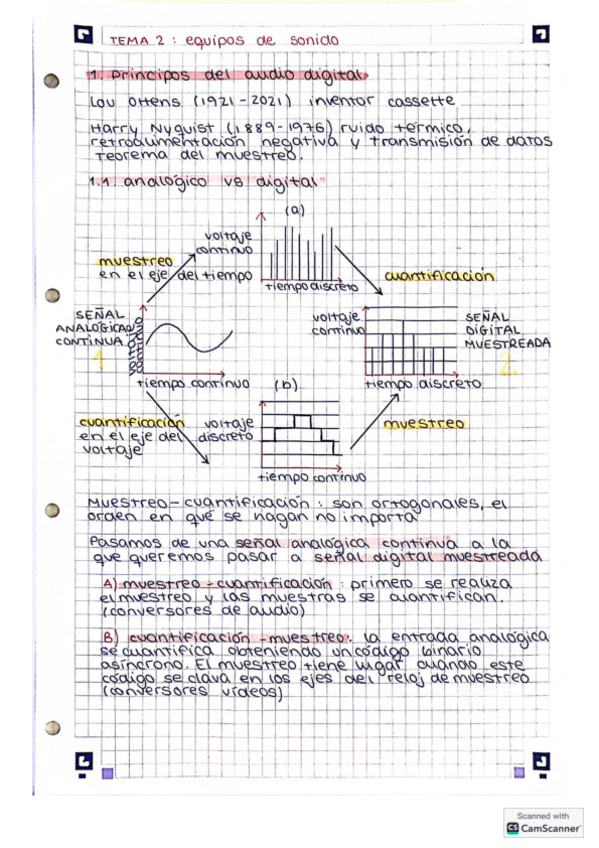 TEMA 2 : equipos de sonido
1. Principos del audio digital
Lou Ottens (1921-2021) inventor cassette
Harry Nyquist (1889-1976) ruido térmico,
retroalimentación negativa y transmisión de datos
Teorema del muestreo.
1.1. analógico vs digital
(a)
voltaje
continuo
muestreo
en el eje del tiempo
tiempo discreto
cuantificación
SEÑAL
ANALÓGICA
CONTINUA
1
voltaje
continuo
SEÑAL
DIGITAL
MUESTREADA
2
tiempo continuo
(b)
tiempo discreto
cuantificación
en el eje del
voltaje
voltaje
discreto
muestreo
tiempo continuo
Muestreo-cuantificación : son ortogonales, el
orden en que se hagan no importa
Pasamos de una señal analógica continua a la
que queremos pasar a señal digital muestreada
A) muestreo-cuantificación : primero se realiza
el muestreo y las muestras se cuantifican.
(conversores de audio)
B) cuantificación-muestreo: la entrada analógica
se cuantifica obteniendo un código binario
asíncrono. El muestreo tiene lugar cuando este
código se clava en los ejes del reloj de muestreo
(conversores vídeos)
Scanned with
CS CamScanner